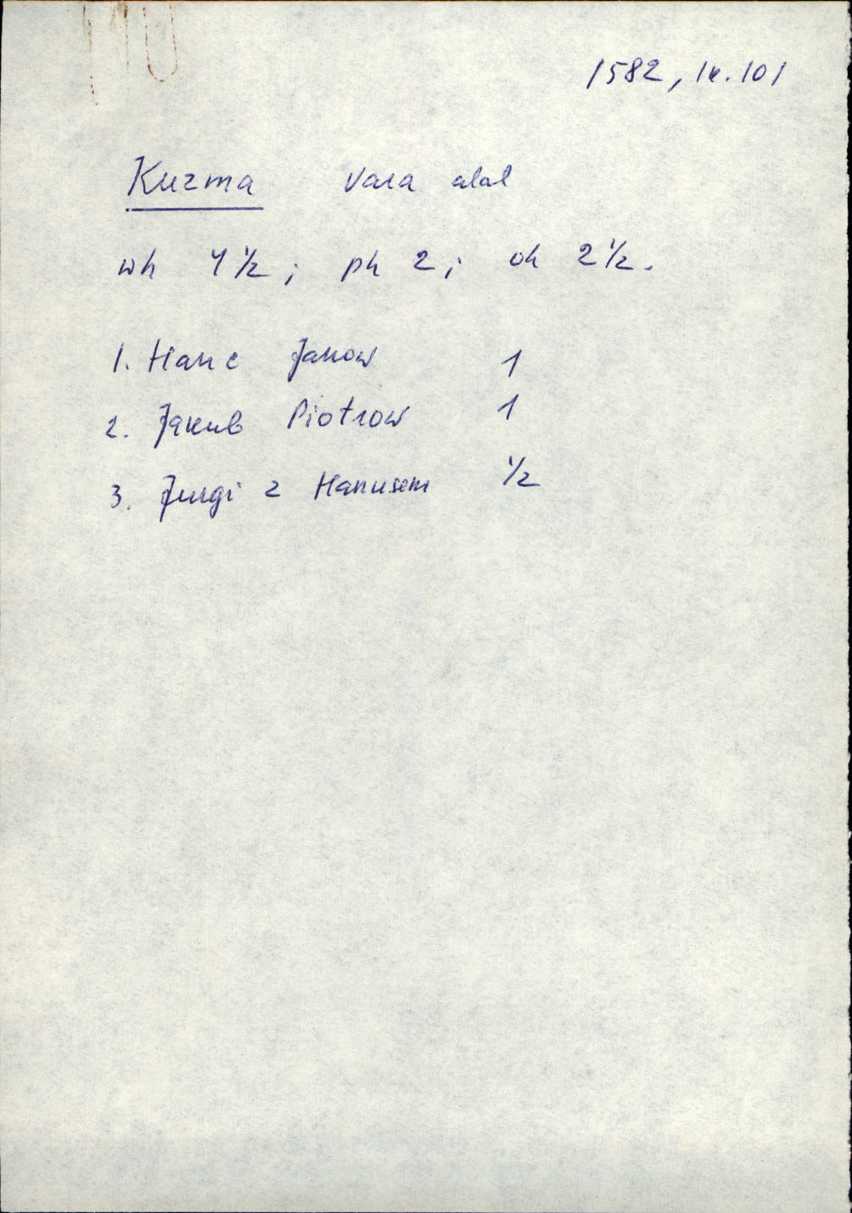 1582, lk. 101
Kuzma Vara alal
wh 4 1/2; ph 2; oh 2 1/2.
1. Hanc Janow 1
2. Jakub Piotrow 1
3. Jurgi z Hanusem 1/2